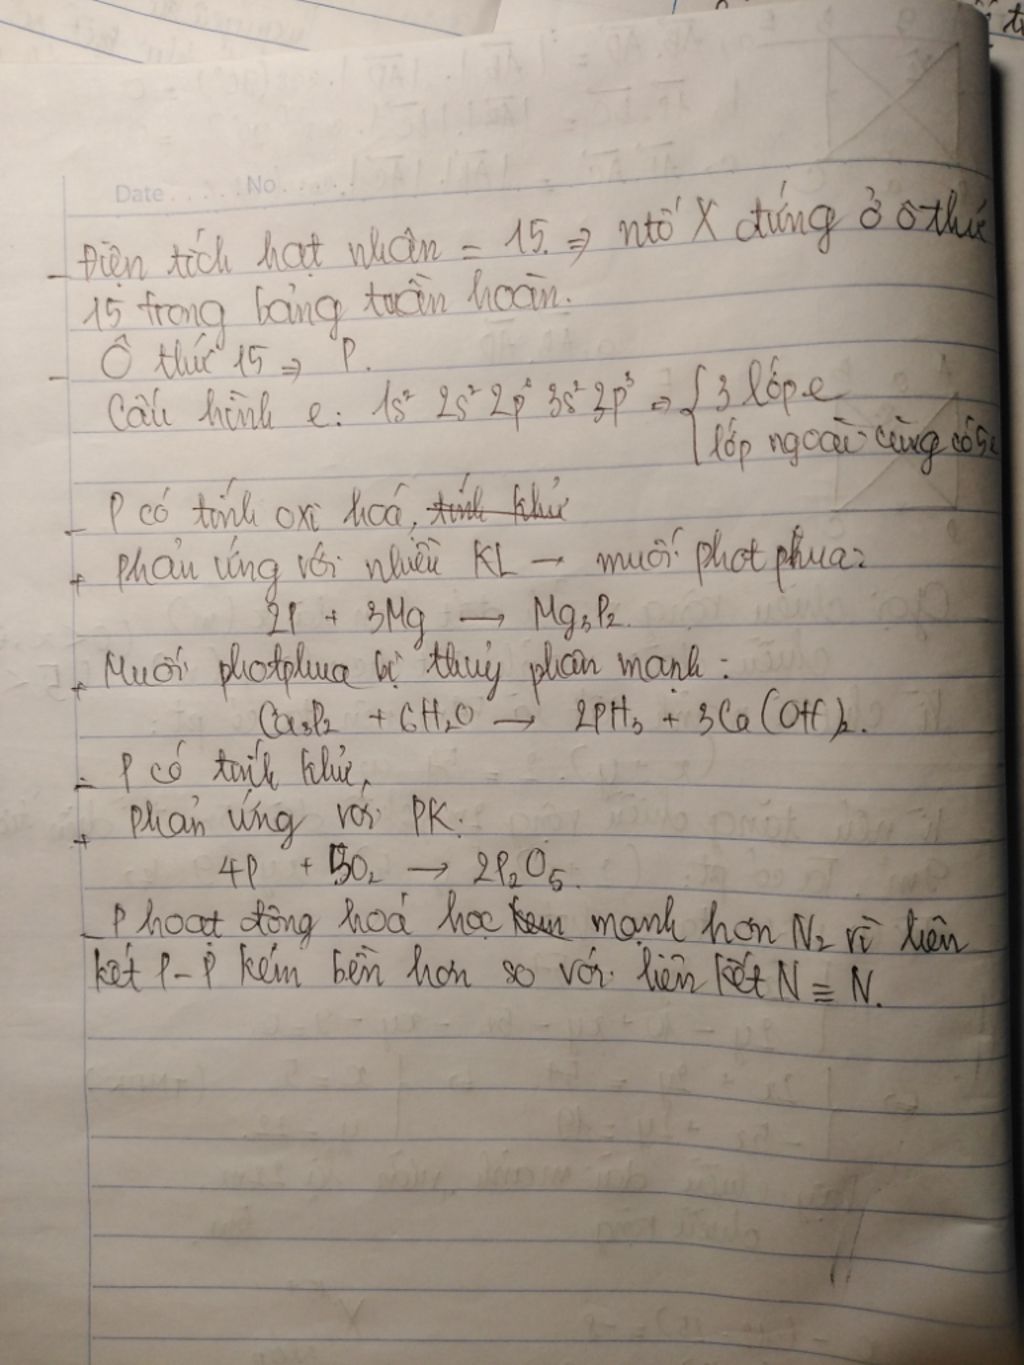 Date ...... No ......
- Điện tích hạt nhân = 15. => ntố X đứng ở ô thứ
15 trong bảng tuần hoàn.
- Ô thứ 15 => P.
Cấu hình e: 1s² 2s² 2p⁶ 3s² 3p³ => { 3 lớp e
lớp ngoài cùng có 5e
- P có tính oxi hoá, tính khử
+ Phản ứng với nhiều KL → muối photphua:
2P + 3Mg → Mg₃P₂.
+ Muối photphua bị thuỷ phân mạnh:
Ca₃P₂ + 6H₂O → 2PH₃ + 3Ca(OH)₂.
- P có tính khử,
+ Phản ứng với PK:
4P + 5O₂ → 2P₂O₅.
- P hoạt động hoá học kém mạnh hơn N₂ vì liên
kết P-P kém bền hơn so với liên kết N≡N.